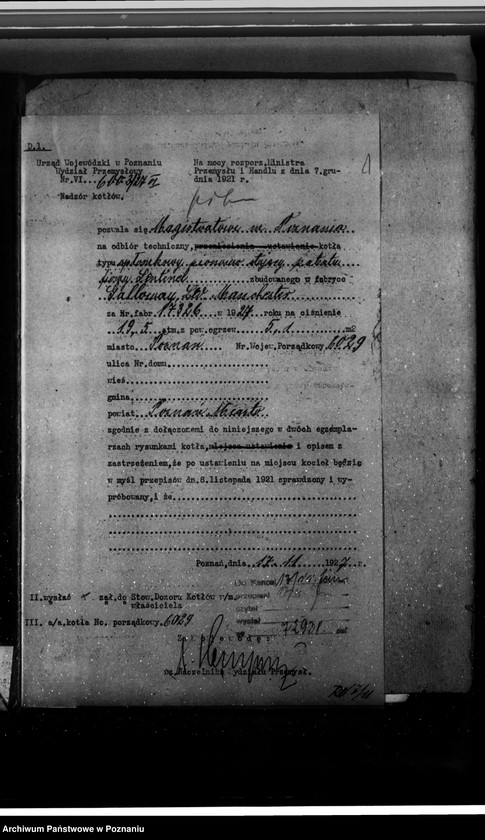 D.1.
Urząd Wojewódzki w Poznaniu
Wydział Przemysłowy
Nr.VI.
Nadzór kotłów.
Na mocy rozporz.Ministra
Przemysłu i Handlu z dnia 7.gru-
dnia 1921 r.
pozwala się Magistratowi m. Poznania
na odbiór techniczny, przeniesienie - ustawienie kotła
typu opłomkowy pionowo stojący patentu
firmy Sentinel zbudowanego w fabryce
Galloway, Ltd. Manchester
za Nr.fabr. 17326 w 1927 roku na ciśnienie
19,5 atm.z pow.ogrzew. 5,1 m2
miasto Poznań Nr.Wojew.Porządkowy 6029
ulica Nr.domu
wieś
gmina
powiat Poznań Miasto
zgodnie z dołączonemi do niniejszego w dwóch egzempla-
rzach rysunkami kotła, miejsca ustawienia i opisem z
zastrzeżeniem,że po ustawieniu na miejscu kocioł będzie
w myśl przepisów dn.8.listopada 1921 sprawdzony i wy-
próbowany,i że
Poznań,dnia 17. 11. 1927 r.
II.wysłać zał.do Stow.Dozoru Kotłów w/m.
właściciela
III. a/a.kotła Nc. porządkowy. 6029
Do Kancel.
przepisał
czytał
wysłał
Za Wojewodę:
wz.Naczelnika Wydziału Przemysł.
Archiwum Państwowe w Poznaniu